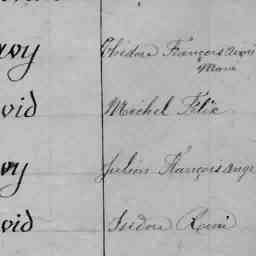 avy Isidore François Aimé
Marie
vid Michel Félix
vy Julien François Ange
vid Isidore Remi